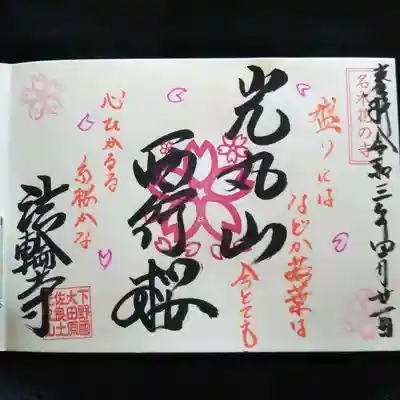 名木花の寺
奉拝 令和三年四月廿一日
盛りには
などか若葉は
今とても
光丸山
西行桜
心ひかるる
糸桜かな
法輪寺
下野國
大田原
佐良土